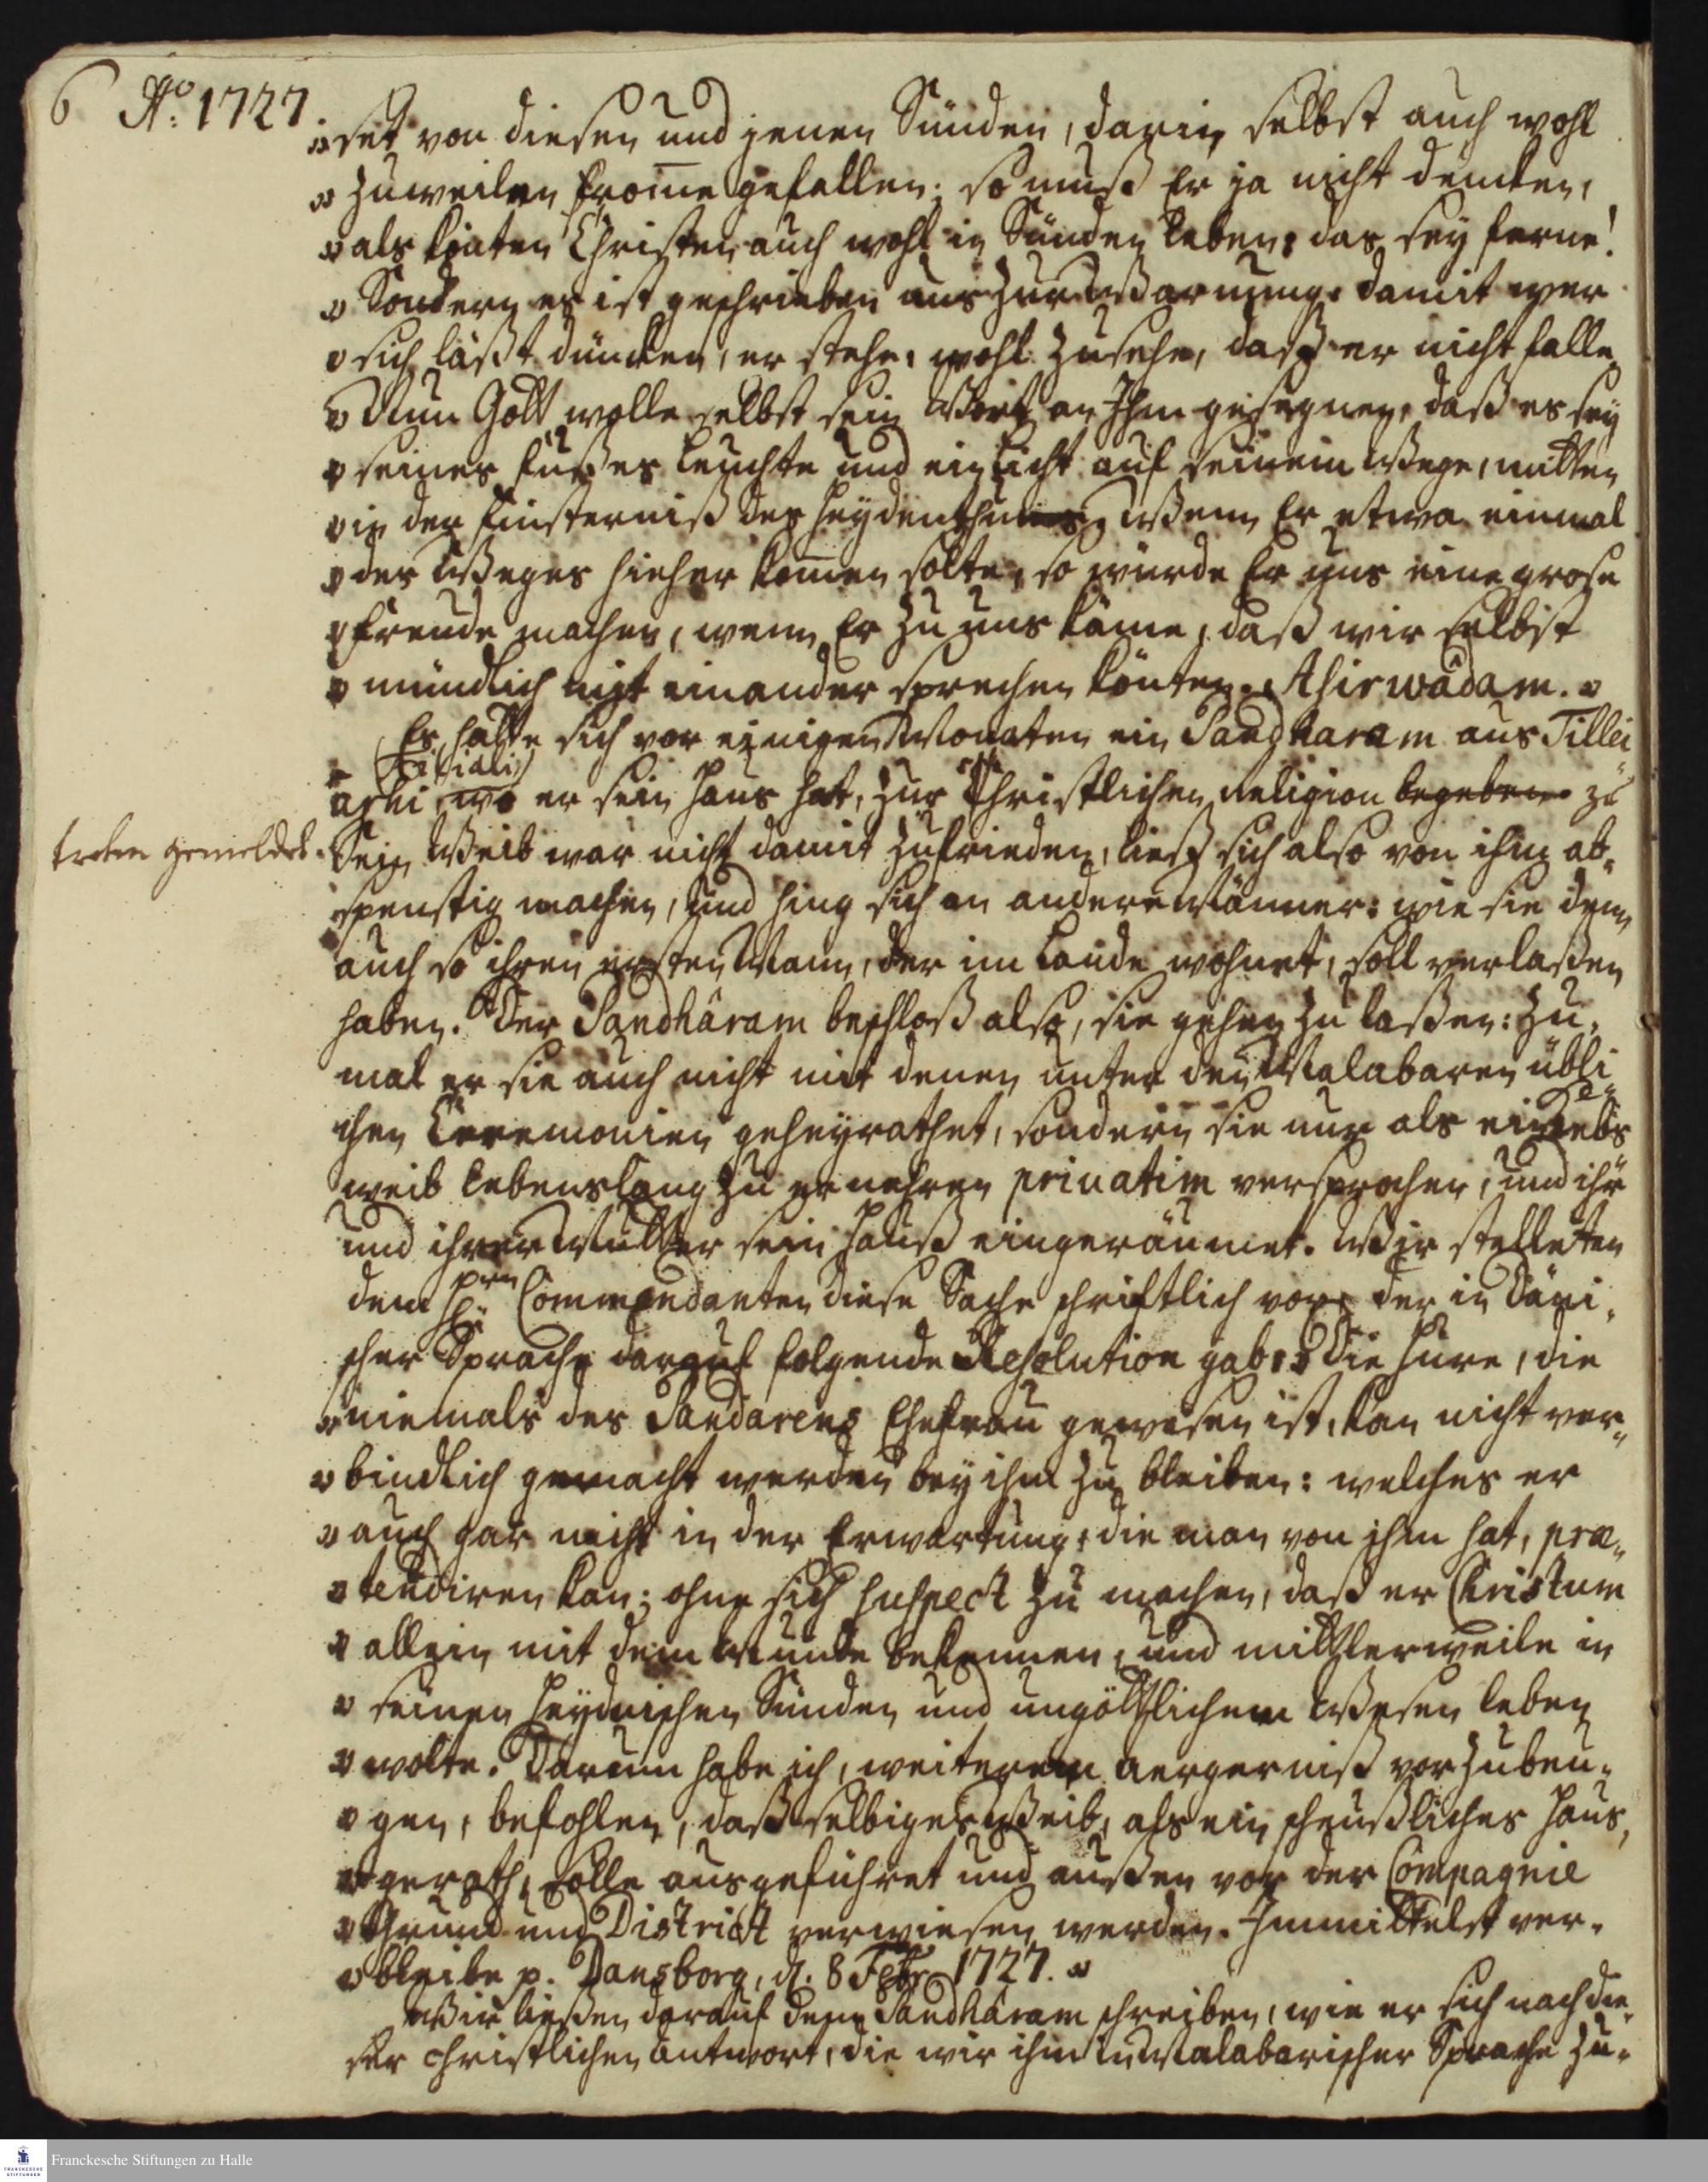 6 Ao: 1727.
„set von diesen und jenen Sünden, darin selbst auch wohl
„zuweilen Frome gefallen; so muß Er ja nicht dencken,
„als könten Christen auch wohl in Sünden leben: das sey ferne!
„Sondern es ist geschrieben uns zur Warnung: damit wer
„sich läßt düncken, er stehe, wohl zusehe, daß er nicht falle.
„Nun Gott wolle selbst sein Wort an Ihm gesegnen, daß es sey
„seines Fußes Leuchte und ein Licht auf seinem Wege, mitten
„in der Finsterniß des Heydenthums. Wenn Er etwa einmal
„des Weges hieher komen solte, so würde Er uns eine grose
„Freude machen, wenn Er zu uns käme, daß wir selbst
„mündlich mit einander sprechen könten. Ahirwâdam. „
Es hatte sich vor einigen Monaten ein Pandharam aus Tillei
(Filiali)
arhi, wo er sein Haus hat, zur Christlichen Religion begeben zu
treten gemeldet.
Sein Weib war nicht damit zufrieden, ließ sich also von ihm ab„
spenstig machen, und hing sich an andere Männer: wie sie denn
auch so ihren ersten Mann, der im Lande wohnet, soll verlaßen
haben. Der Pandhâram beschloß also, sie gehen zu laßen: zu„
mal er sie auch nicht mit denen unter den Malabaren übli
chen Ceremonien geheyrathet, sondern sie nur als ein Kebs
weib lebenslang zu ernehren privatim versprochen, und ihr
und ihrer Mutter sein Hauß eingeräumet. Wir stelleten
dem Hrn Commendanten diese Sache schriftlich vor, der in Däni„
scher Sprache darauf folgende Resolution gab: „Die Hure, die
„niemals des Pandarens Ehefrau gewesen ist, kan nicht ver„
„bindlich gemacht werden bey ihm zu bleiben: welches er
„auch gar nicht in der Erwartung, die man von ihm hat, præ„
„tendiren kan; ohne sich suspect zu machen, daß er Christum
„allein mit dem Munde bekennen, und mittlerweile in
„seinen Heydnischen Sünden und ungöttlichem Wesen leben
„wolte. Darum habe ich, weiterem aergerniß vorzubeu„
„gen, befohlen, daß selbiges Weib, als ein scheußliches Haus„
„geräth, solle ausgeführet und außen vor der Compagnie
„Grund und District verwiesen werden. Immittelst ver„
„bleibe p. Dansborg, d. 8 Febr. 1727. „
Wir ließen darauf dem Pandhâram schreiben, wie er sich nach die„
ser christlichen Antwort, die wir ihm in Malabarischer Sprache zu„
Franckesche Stiftungen zu Halle
FRANCKESCHE
STIFTUNGEN